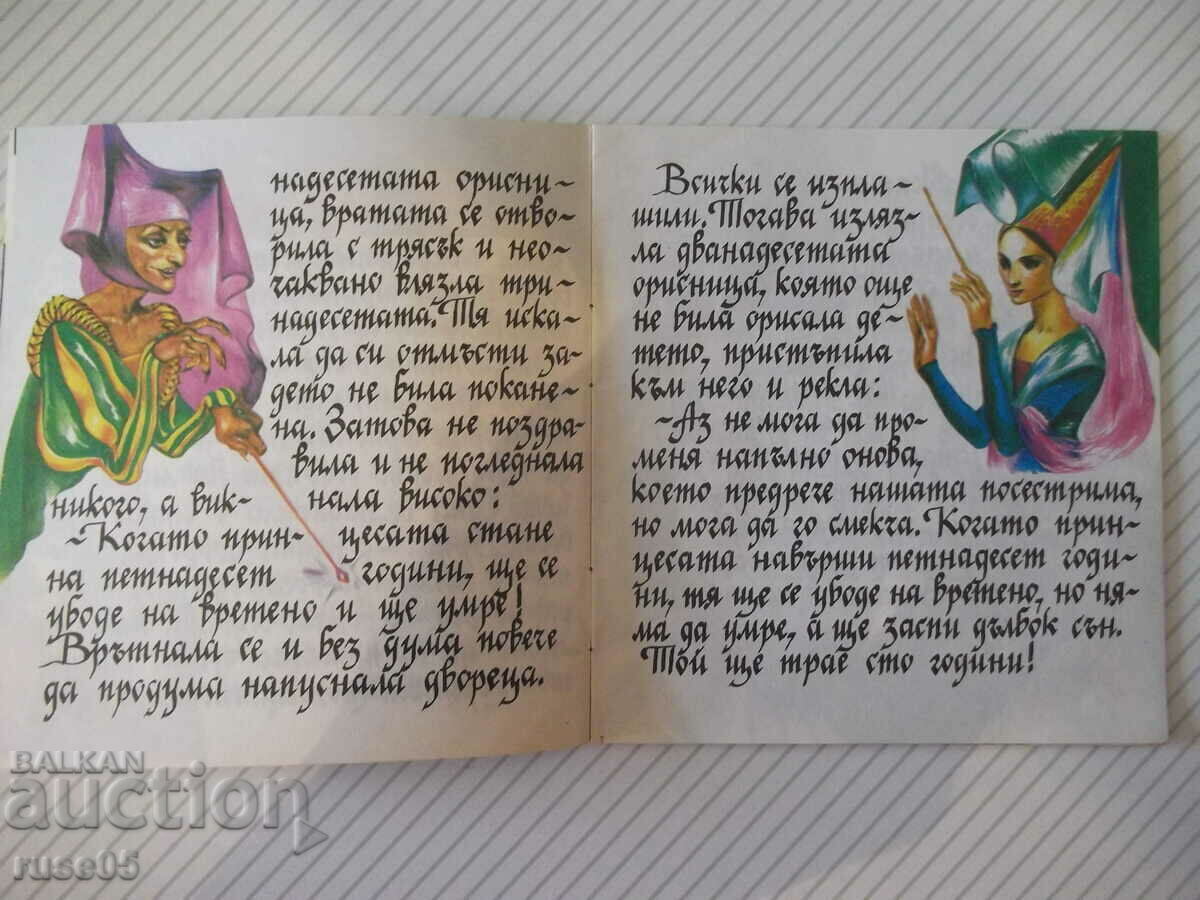 надесетата орисни-
ца, вратата се отво-
рила с трясък и нео-
чаквано влязла три-
надесетата. Тя иска-
ла да си отмъсти за-
дето не била покане-
на. Затова не поздра-
вила и не погледнала
никого, а вик- нала високо:
-Когато прин- цесата стане
на петнадесет години, ще се
убоде на вретено и ще умре!
Врътнала се и без дума повече
да продума напуснала двореца.
Всички се изпла-
шили. Тогава изляз-
ла дванадесетата
орисница, която още
не била орисала де-
тето, пристъпила
към него и рекла:
-Аз не мога да про-
меня напълно онова,
което предрече нашата посестрима,
но мога да го смекча. Когато прин-
цесата навърши петнадесет годи-
ни, тя ще се убоде на вретено, но ня-
ма да умре, а ще заспи дълбок сън.
Той ще трае сто години!
BALKAN
auction
ruse05